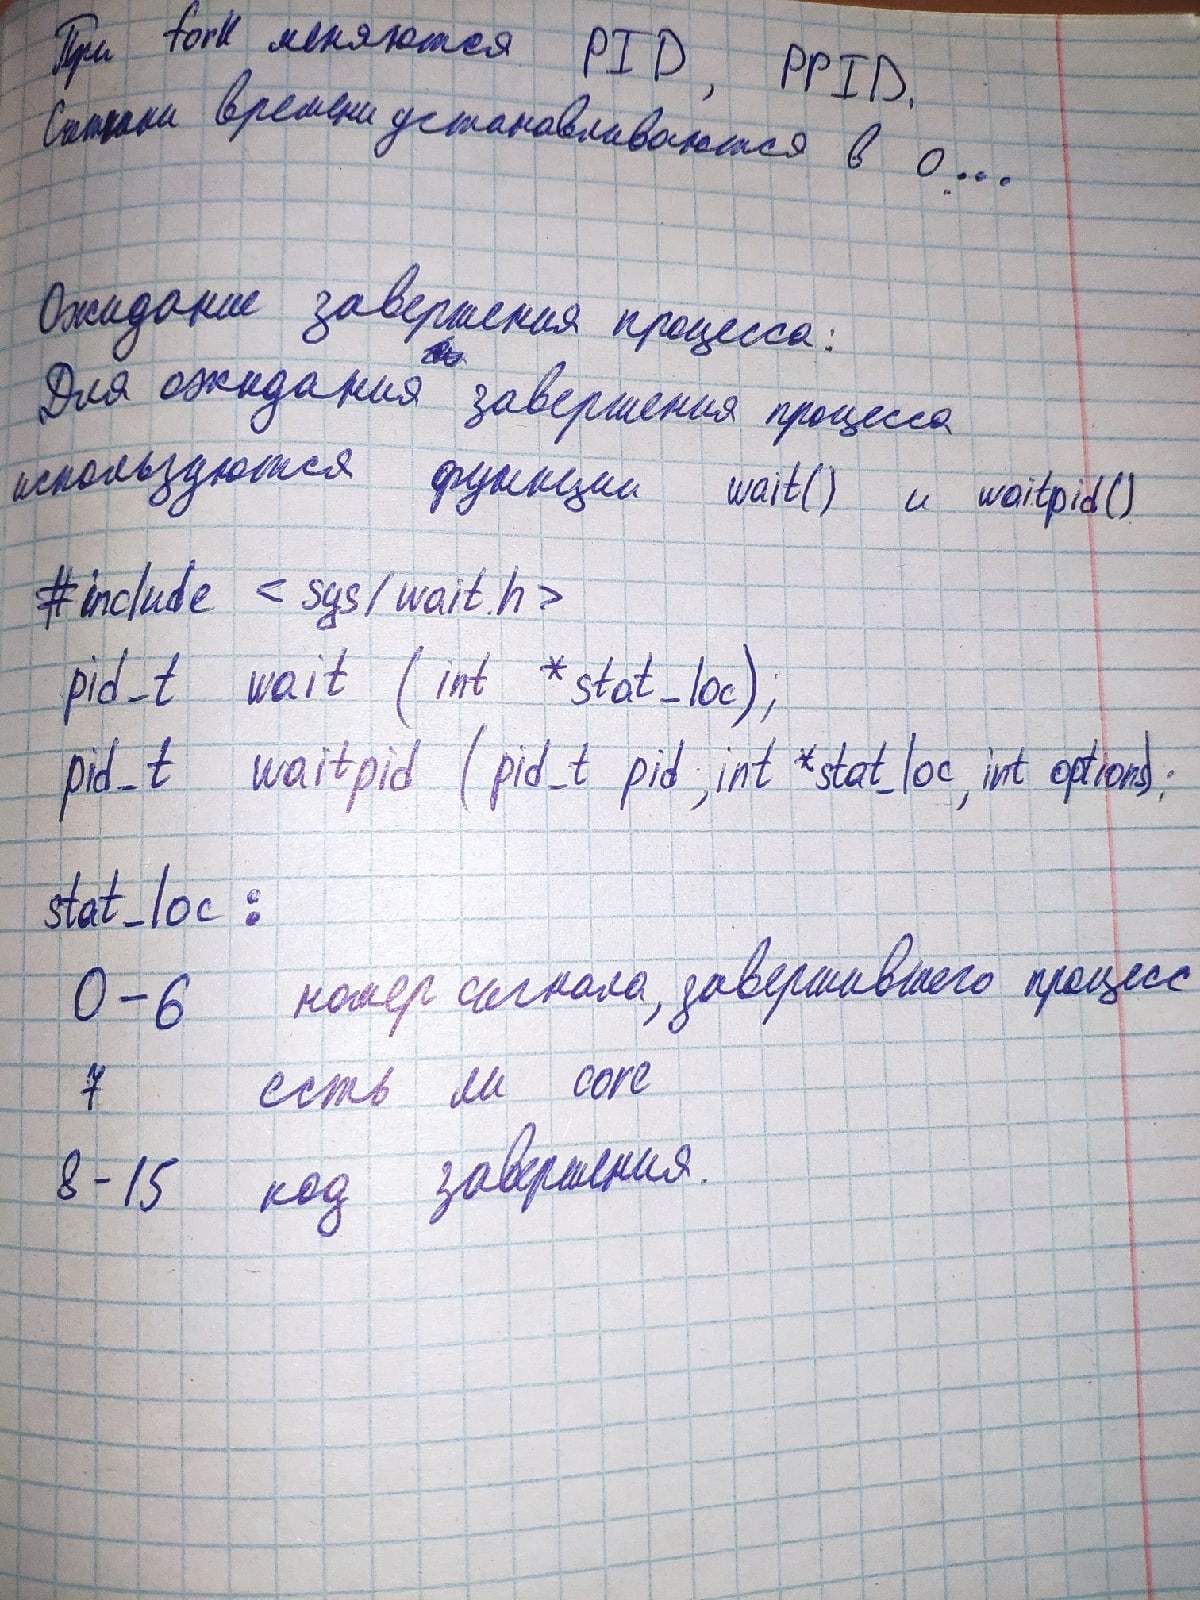 При fork меняются PID, PPID.
Счетчики времени устанавливаются в 0...
Ожидание завершения процесса:
Для ожидания завершения процесса
используются функции wait() и waitpid()
#include <sys/wait.h>
pid_t wait (int *stat_loc);
pid_t waitpid (pid_t pid, int *stat_loc, int options);
stat_loc:
0-6 номер сигнала, завершившего процесс
7 есть ли core
8-15 код завершения.